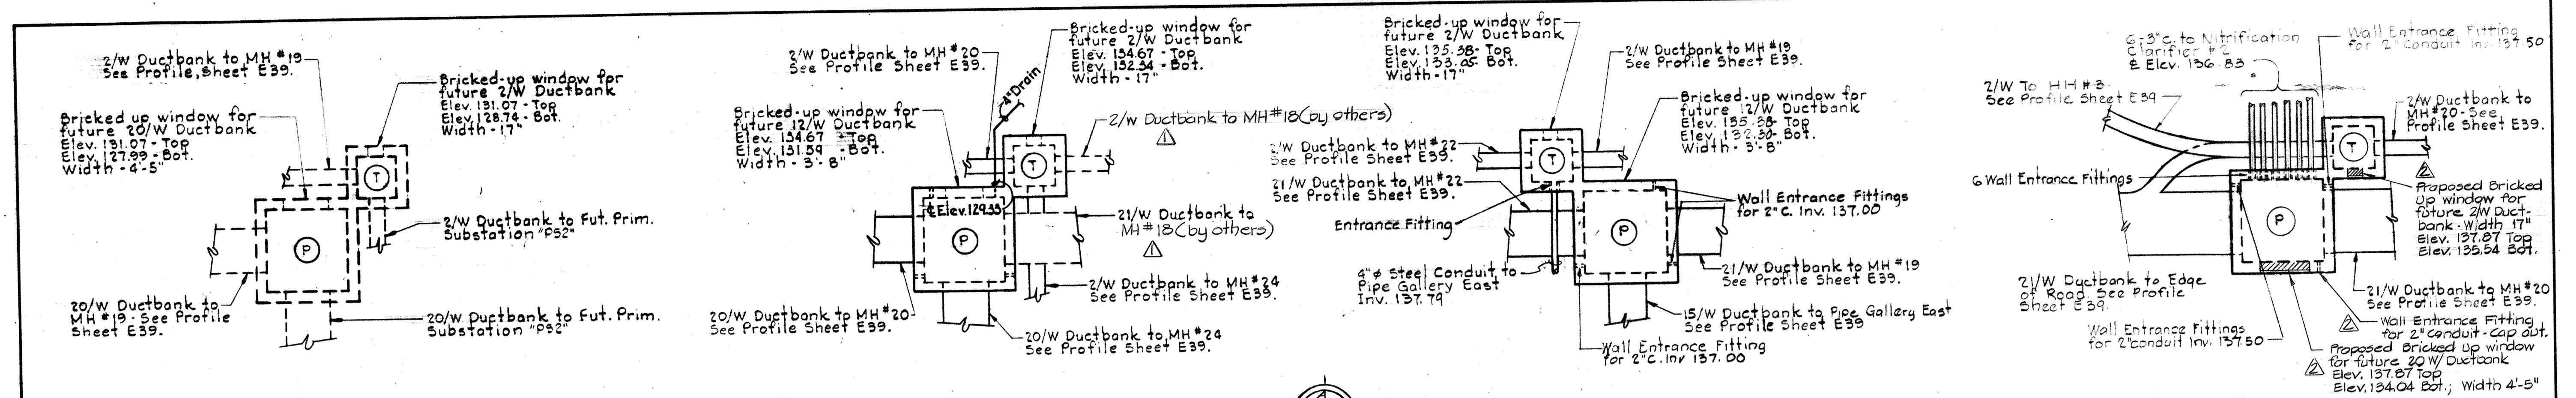 2/W Ductbank to MH #19
See Profile, Sheet E39.
Bricked-up window for
future 2/W Ductbank
Elev. 131.07 - Top
Elev. 128.74 - Bot.
Width - 17"
Bricked up window for
future 20/W Ductbank
Elev. 131.07 - Top
Elev. 127.99 - Bot.
Width - 4'-5"
T
P
2/W Ductbank to Fut. Prim.
Substation "PS2"
20/W Ductbank to
MH #19 - See Profile
Sheet E39.
20/W Ductbank to Fut. Prim.
Substation "PS2"
2/W Ductbank to MH #20
See Profile Sheet E39.
Bricked-up window for
future 2/W Ductbank
Elev. 134.67 - Top
Elev. 132.34 - Bot.
Width - 17"
4" Drain
Bricked-up window for
future 12/W Ductbank
Elev. 134.67 - Top
Elev. 131.59 - Bot.
Width - 3'-8"
2/W Ductbank to MH #18 (by others)
1
T
℄ Elev. 129.33
P
21/W Ductbank to
MH #18 (by others)
1
2/W Ductbank to MH #24
See Profile Sheet E39.
20/W Ductbank to MH #20
See Profile Sheet E39.
20/W Ductbank to MH #24
See Profile Sheet E39.
Bricked-up window for
future 2/W Ductbank
Elev. 135.38 - Top
Elev. 133.05 - Bot.
Width - 17"
2/W Ductbank to MH #19
See Profile Sheet E39.
Bricked-up window for
future 12/W Ductbank
Elev. 135.38 - Top
Elev. 132.30 - Bot.
Width - 3'-8"
2/W Ductbank to MH #22
See Profile Sheet E39.
T
21/W Ductbank to MH #22
See Profile Sheet E39.
Wall Entrance Fittings
for 2"C. Inv. 137.00
Entrance Fitting
P
4"φ Steel Conduit to
Pipe Gallery East
Inv. 137.79
21/W Ductbank to MH #19
See Profile Sheet E39.
15/W Ductbank to Pipe Gallery East
See Profile Sheet E39
Wall Entrance Fitting
for 2"C. Inv 137.00
6-3"C. to Nitrification
Clarifier #2
℄ Elev. 136.83
Wall Entrance Fitting
for 2" Conduit Inv. 137.50
2/W To HH #3
See Profile Sheet E39
2/W Ductbank to
MH #20 - See
Profile Sheet E39.
T
6 Wall Entrance Fittings
2
Proposed Bricked
Up window for
future 2/W Duct-
bank - Width 17"
Elev. 137.87 Top
Elev. 135.54 Bot.
P
21/W Ductbank to Edge
of Road. See Profile
Sheet E39.
21/W Ductbank to MH #20
See Profile Sheet E39.
Wall Entrance Fittings
for 2" conduit Inv. 137.50
2
Wall Entrance Fitting
for 2" Conduit - Cap out.
2
Proposed Bricked Up window
for future 20 W/ Ductbank
Elev. 137.87 Top
Elev. 134.04 Bot.; Width 4'-5"